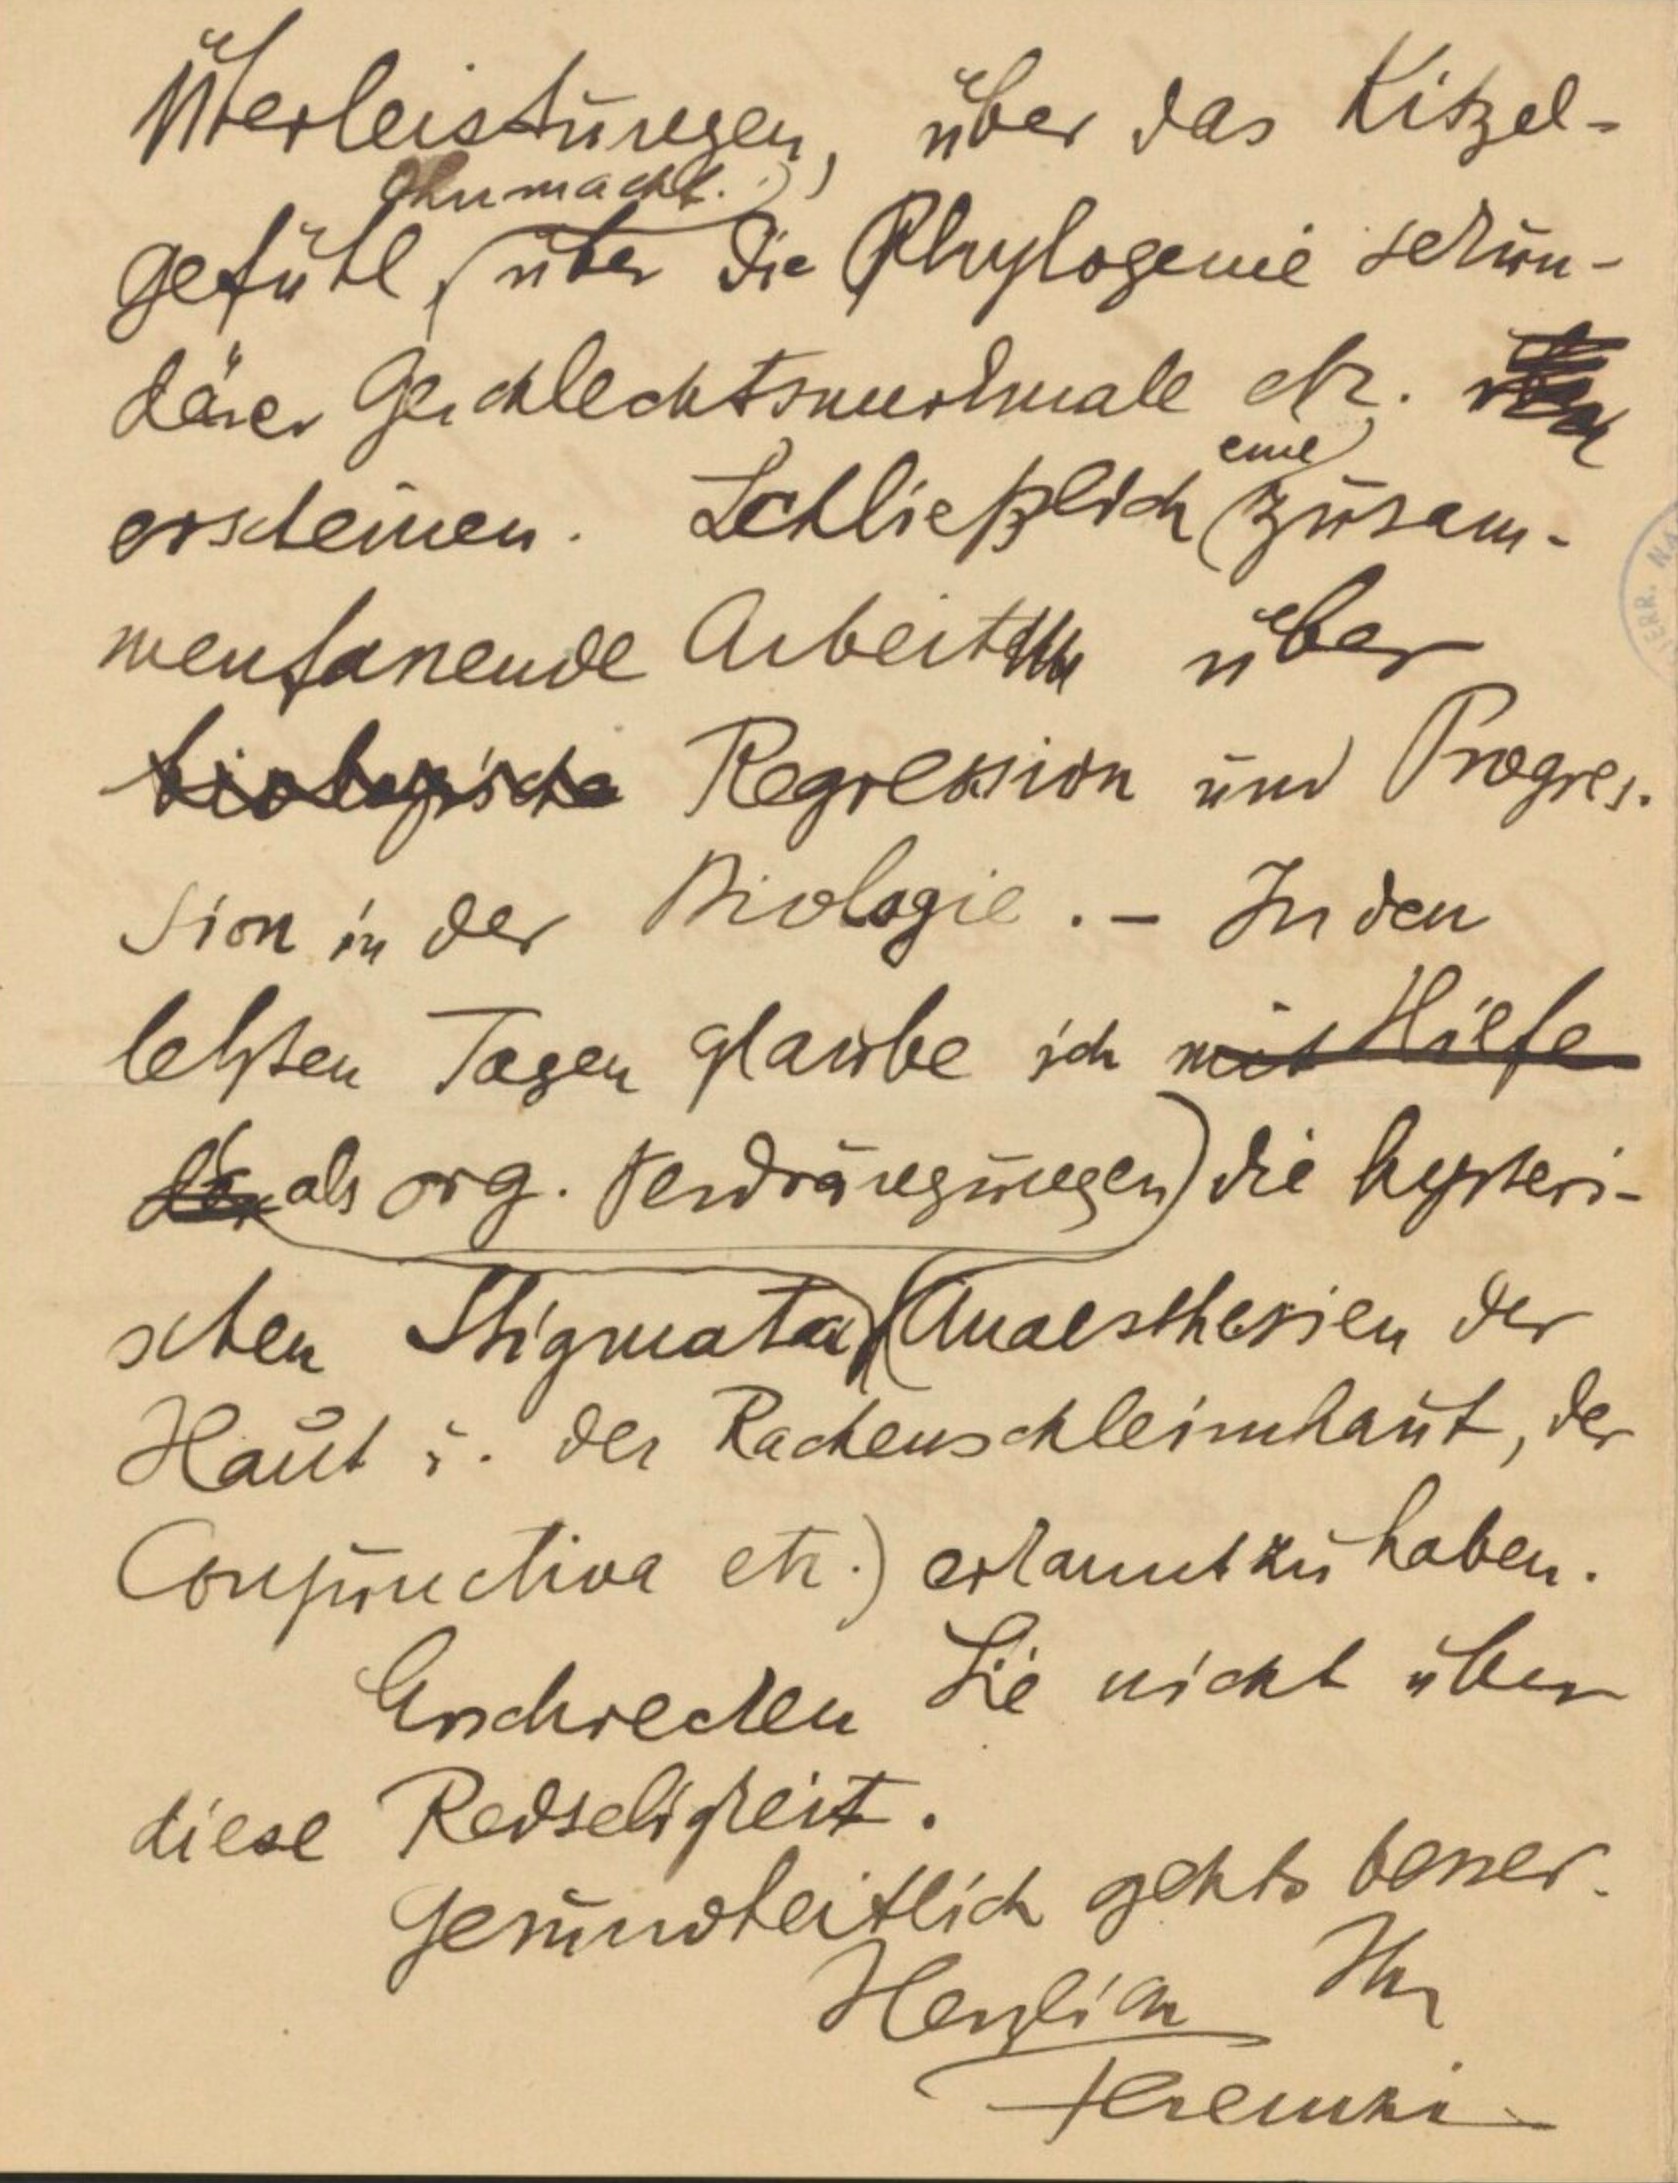 Überleistungen, über das Kitzel-
Ohnmacht.
gefühl, über die Phylogenie sekun-
därer Geschlechtsmerkmale etz.
eine
erscheinen. Schließlich zusam-
menfassende Arbeit über
biologische Regression und Progres-
sion in der Biologie. – In den
letzten Tagen glaube ich mit Hilfe
der als org. Verdrängungen) die hysteri-
schen Stigmata (Anaesthesien der
Haut u. der Rachenschleimhaut, der
Conjunctiva etz.) erkannt zu haben.
Erschrecken Sie nicht über
diese Redseligkeit.
Gesundheitlich gehts besser.
Herzlich Ihr
Ferenczi